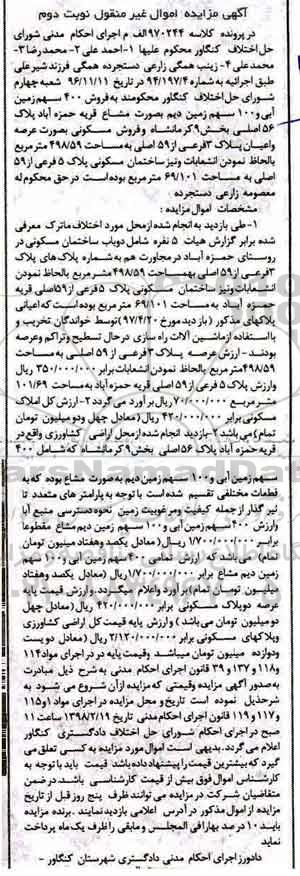 آگهی مزایده اموال غیر منقول نوبت دوم
در پرونده کلاسه ۹۷۰۲۴۴الف م اجرای احکام مدنی شورای
حل اختلاف کنگاور محکوم علیها ۱-احمد علی ۲-محمد رضا ۳-
محمد علی ۴- زینب همگی زارعی دستجرده همگی فرزند شیر علی
طبق اجرائیه به شماره ۹۴/۱۹۷/۴ در تاریخ ۹۶/۱۱/۱۱ شعبه چهارم
شورای حل اختلاف کنگاور محکومند به فروش ۴۰۰ سهم زمین
آبی و ۱۰۰ سهم زمین دیم بصورت مشاع قریه حمزه آباد پلاک
۵۶ اصلی بخش ۹ کرمانشاه و فروش مسکونی بصورت عرصه
واعیان پلاک ۳ فرعی از ۵۹ اصلی به مساحت ۴۹۸/۵۹ متر مربع
بالحاظ نمودن انشعابات ونیز ساختمان مسکونی پلاک ۵ فرعی از ۵۹
اصلی به مساحت ۶۹/۱۰۱ متر مربع بوده است در حق محکوم له
معصومه زارعی دستجرده
مشخصات اموال مزایده :
۱-طی بازدید به انجام شده از محل مورد اختلاف ماترک معرفی
شده برابر گزارش هیات ۵ نفره شامل دوباب ساختمان مسکونی در
روستای حمزه آباد در مجاورت هم به شماره پلاک های پلاک
۳فرعی از ۵۹ اصلی بهمساحت ۴۹۸/۵۹متر مربع بالحاظ نمودن
انشعابات ونیز ساختمان مسکونی پلاک ۵ فرعی از ۵۹اصلی قریه
حمزه آباد به مساحت ۶۹/۱۰۱ متر مربع بوده است که اعیانی
پلاکهای مذکور (بازدید مورخ ۹۷/۴/۲۰) توسط خواندگان تخریب و
با استفاده از ماشین آلات راه سازی در حال تسطیح وتراکم وعرصه
بودند-ارزش عرصه پلاک ۳ فرعی از ۵۹ اصلی به مساحت
۴۹۸/۵۹متر مربع بالحاظ نمودن انشعابات برابر ۳۵۰/۰۰۰/۰۰۰ ریال
وارزش پلاک ۵ فرعی از ۵۹ اصلی قریه حمزه آباد به مساحت ۱۰۱/۶۹
متر مربع ۷۰/۰۰۰/۰۰۰ ریال بر آورد می گردد ۲-ارزش کل املاک
مسکونی برابر ۴۲۰/۰۰۰/۰۰۰ ریال (معادل چهل ودو میلیون تومان
تمام)می باشد ۳-بازدید انجام شده از محل اراضی کشاورزی واقع در
قریه حمزه آباد پلاک ۵۶ اصلی بخش ۹ کرمانشاه که شامل ۴۰۰
سهم زمین آبی و ۱۰۰ سهم زمین دیم به صورت مشاع بوده که به
قطعات مختلفی تقسیم شده است با توجه به پارامتر های متعدد تا
ثیر گذار از جمله کیفیت ومرغوبیت زمین نحوه دسترسی منبع آبا
وارزش ۴۰۰ سهم زمین آبی و ۱۰۰ سهم زمین دیم مشاع مقطوعا
برابر ۱/۷۰۰/۰۰۰/۰۰۰ ریال (معادل یکصد وهفتاد مینیون تومان
تمام) می باشد که ارزش تمامی ۴۰۰ سهم زمین آبی و ۱۰۰ سهم
زمین دیم مشاع برابر ۱/۷۰۰/۰۰۰/۰۰۰ریال (معادل یکصد وهفتاد
میلیون تومان تمام)برآورد واعلام میگردد.وارزش قیمت پایه
عرصه دوپلاک مسکونی برابر ۴۲۰/۰۰۰/۰۰۰ ریال (معادل چهل
دو میلیون تومان می باشد) وارزش پایه قیمت کل اراضی کشاورزی
وپلاکهای مسکونی برابر ۲/۱۲۰/۰۰۰/۰۰۰ ریال (معادل دویست
ودوازده مینیون تومان میباشد وقیمت پایه در در اجرای مواد۱۱۴
و۱۱۸ و ۱۳۷ و ۳۹ قانون اجرای احکام مدنی به شرح ذیل مبادرت
به صدور آگهی مزایده وقیمتی که مزایده از آن شروع می شود به
شرح ذیل نموده است تاریخ و محل مزایده در اجرای مواد ۱و۱۱۵
و ۱۱۷ و ۱۱۹ قانون اجرای احکام مدنی تاریخ ۱۳۹۸/۲/۱۹ ساعت ۱۱
صبح در اجرای احکام شورای حل اختلاف دادگستری کنگاور
اعلام می گردد.بدیهی است اموال مورد مزایده به کسی تعلق می
گیرد که بیشترین قیمت را پیشنهاد داده باشد قیمت باید با توجه به
کارشناس اموال فوق بیش از قیمت کارشناسی باشد.در ضمن
متقاضیان شرکت در مزایده می توانند ظرف پنج روز قبل از تاریخ
مزایده از اموال مذکور در آدرس اعلامی بازدید نمایند .برنده مزایده
باید ۱۰ درصد بهارافی المجلس و مابقی را ظرف یک ماه پرداخت
نماید
دادورز اجرای احکام مدنی دادگستری شهرستان کنگاور -